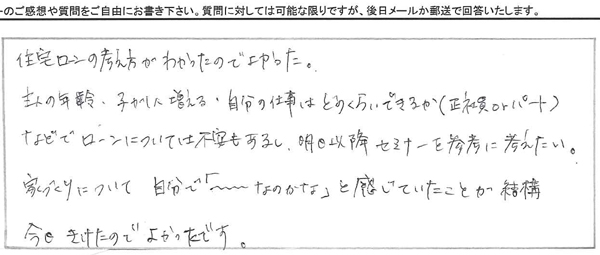 ーのご感想や質問をご自由にお書き下さい。質問に対しては可能な限りですが、後日メールか郵送で回答いたします。
住宅ローンの考え方がわかったのでよかった。
主人の年齢・子が1人増える・自分の仕事はどのくらいできるか(正社員orパート)
などでローンについては不安もあるし、明日以降セミナーを参考に考えたい。
家づくりについて 自分で「〜〜なのかな」と感じていたことが結構
今日きけたのでよかったです。